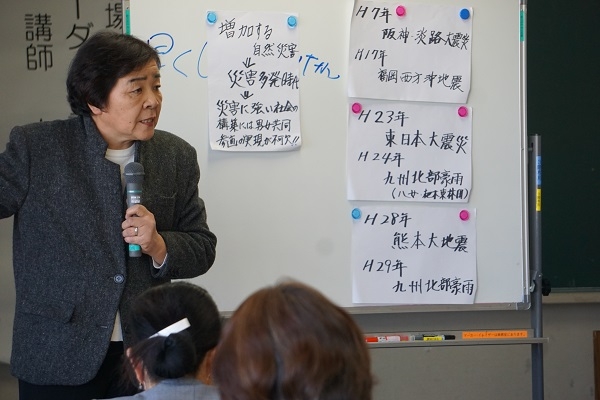 場
ーダ
講師
増加する
自然災害
災害多発時代
災害に強い社会の
構築には男女共同
参画の実現が不欠!!
H7年
阪神・淡路大震災
H17年
福岡西方沖地震
H23年
東日本大震災
H24年
九州北部豪雨
H28年
熊本大地震
H29年
九州北部豪雨